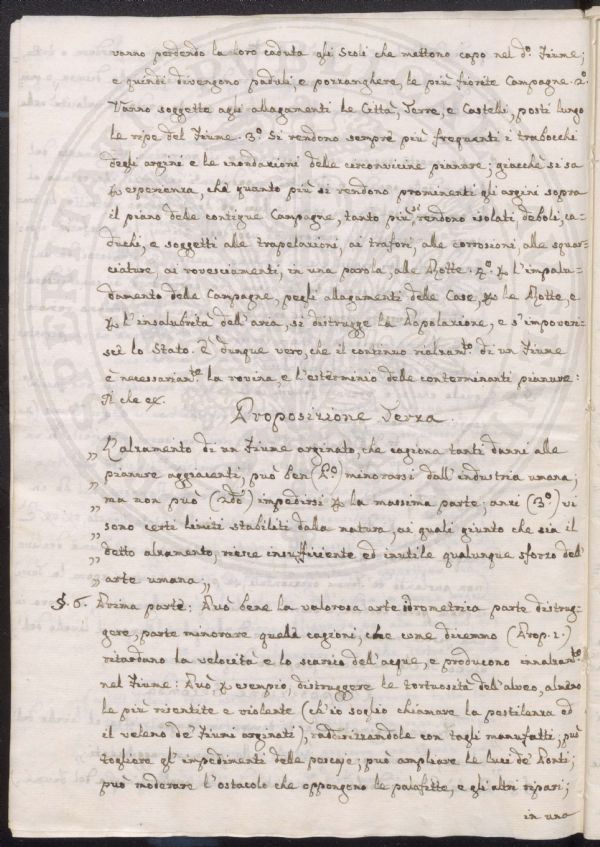 vanno perdendo la loro caduta gli Scoli che mettono capo nel dº. Fiume;
e quindi divengono paduli e pozzanghere, le più fiorite Campagne. 2.º
Vanno soggette agli allagamenti le Città, Terre, e Castelli, posti lungo
le ripe del Fiume. 3.º Si rendono sempre più frequenti i trabocchi
degli argini e le inondazioni delle circonvicine pianure; giacchè si sa
p esperienza, che quanto più si rendono prominenti gli argini sopra
il piano delle contigue Campagne, tanto più si rendono isolati, deboli, ca-
duchi, e soggetti alle trapelazioni, ai trafori, alle corrosioni, alle squar-
ciature, ai rovesciamenti, in una parola, alle Rotte. 4.º p l'impalu-
damento delle Campagne, pegli allagamenti delle Case, p le Rotte, e
p l'insalubrità dell'aria, si distrugge la Popolazione, e s'impoveri-
sce lo Stato. È dunque vero, che il continuo rialzamto. di un Fiume
è necessariamte. la rovina e l'esterminio delle conterminanti pianure:
Il che &c.
Proposizione Terza.
„ L'alzamento di un Fiume arginato, che cagiona tanti danni alle
„ pianure aggiacenti, può ben (1.º) minorarsi dall'industria umana;
„ ma non può (2do) impedirsi p la massima parte; anzi (3.º) vi
„ sono certi limiti stabiliti dalla natura, ai quali giunto che sia il
„ detto alzamento, riesce insufficiente ed inutile qualunque sforzo dell'
„ arte umana „
§. 6. Prima parte: Può bene la valorosa arte idrometrica parte distrug-
gere, parte minorare quelle cagioni, che come dicemmo (Prop. 1.)
ritardano la velocità e lo scarico dell'acque, e producono innalzamto.
nel Fiume: Può p esempio, distruggere le tortuosità dell'alveo, almeno
le più risentite e violente (ch'io soglio chiamare la pestilenza ed
il veleno de' Fiumi arginati), raddirizzandole con tagli manufatti; può
togliere gl'impedimenti delle pescaje; può ampliare le luci de' Ponti;
può moderare l'ostacolo che oppongono le palafitte, e gli altri ripari;
in una